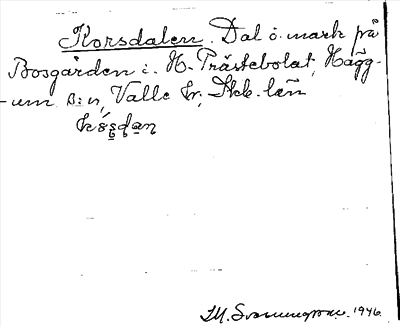 Korsdalen. Dal o. mark på
Bosgården i. H. Prästebolat, Hägg-
um s:n, Valle hr, Skb. län
1946.